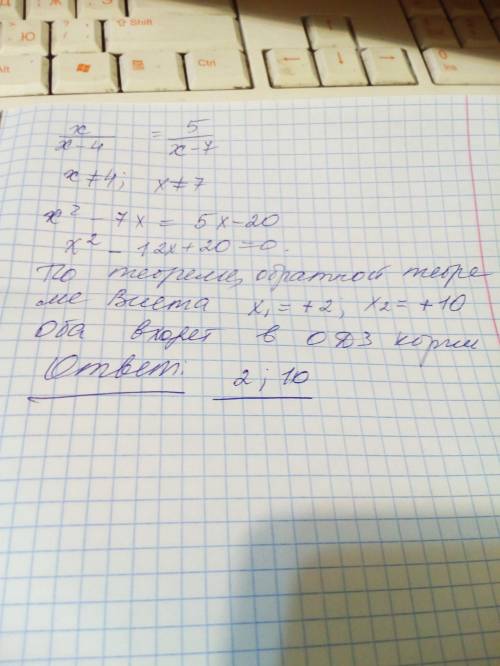 Shift
Alt
Ctrl
Ins
x/(x-4) = 5/(x-7)
x≠4; x≠7
x² - 7x = 5x-20
x² - 12x+20=0.
По теореме, обратной теоре
ме Виета x₁=+2; x₂=+10
Оба входят в ОДЗ корни
Ответ: 2; 10